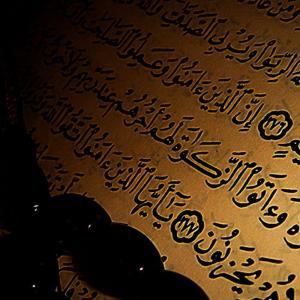 ٱلرِّبَوٰا۟ وَيُرْبِى ٱلصَّدَقَٰتِ
إِنَّ ٱلَّذِينَ ءَامَنُوا۟ وَعَمِلُوا۟ ٱلصَّٰلِحَٰتِ
وَءَاتَوُا۟ ٱلزَّكَوٰةَ لَهُمْ أَجْرُهُمْ عِندَ رَبِّهِمْ وَلَا خَوْفٌ
يَحْزَنُونَ ٢٧٧ يَٰٓأَيُّهَا ٱلَّذِينَ ءَامَنُوا۟ ٱتَّقُوا۟ ٱللَّهَ وَذَرُوا۟